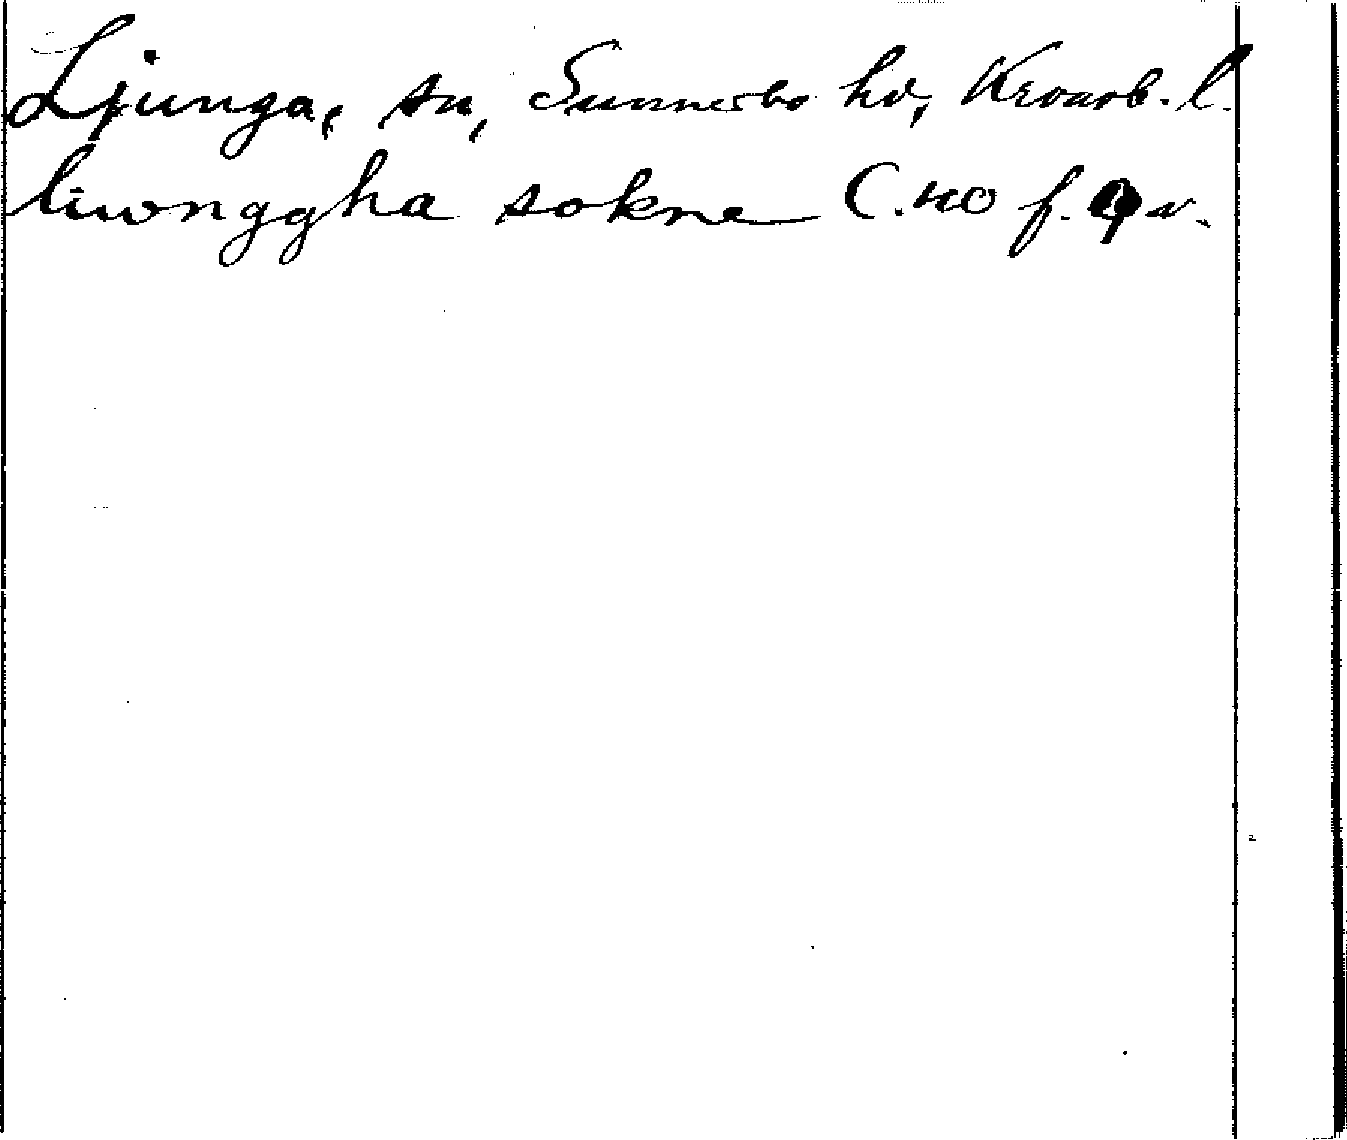 Ljunga, sn, Sunnerbo hd, Kronob. l.
liwnggha sokne C. 40 f. 9 v.